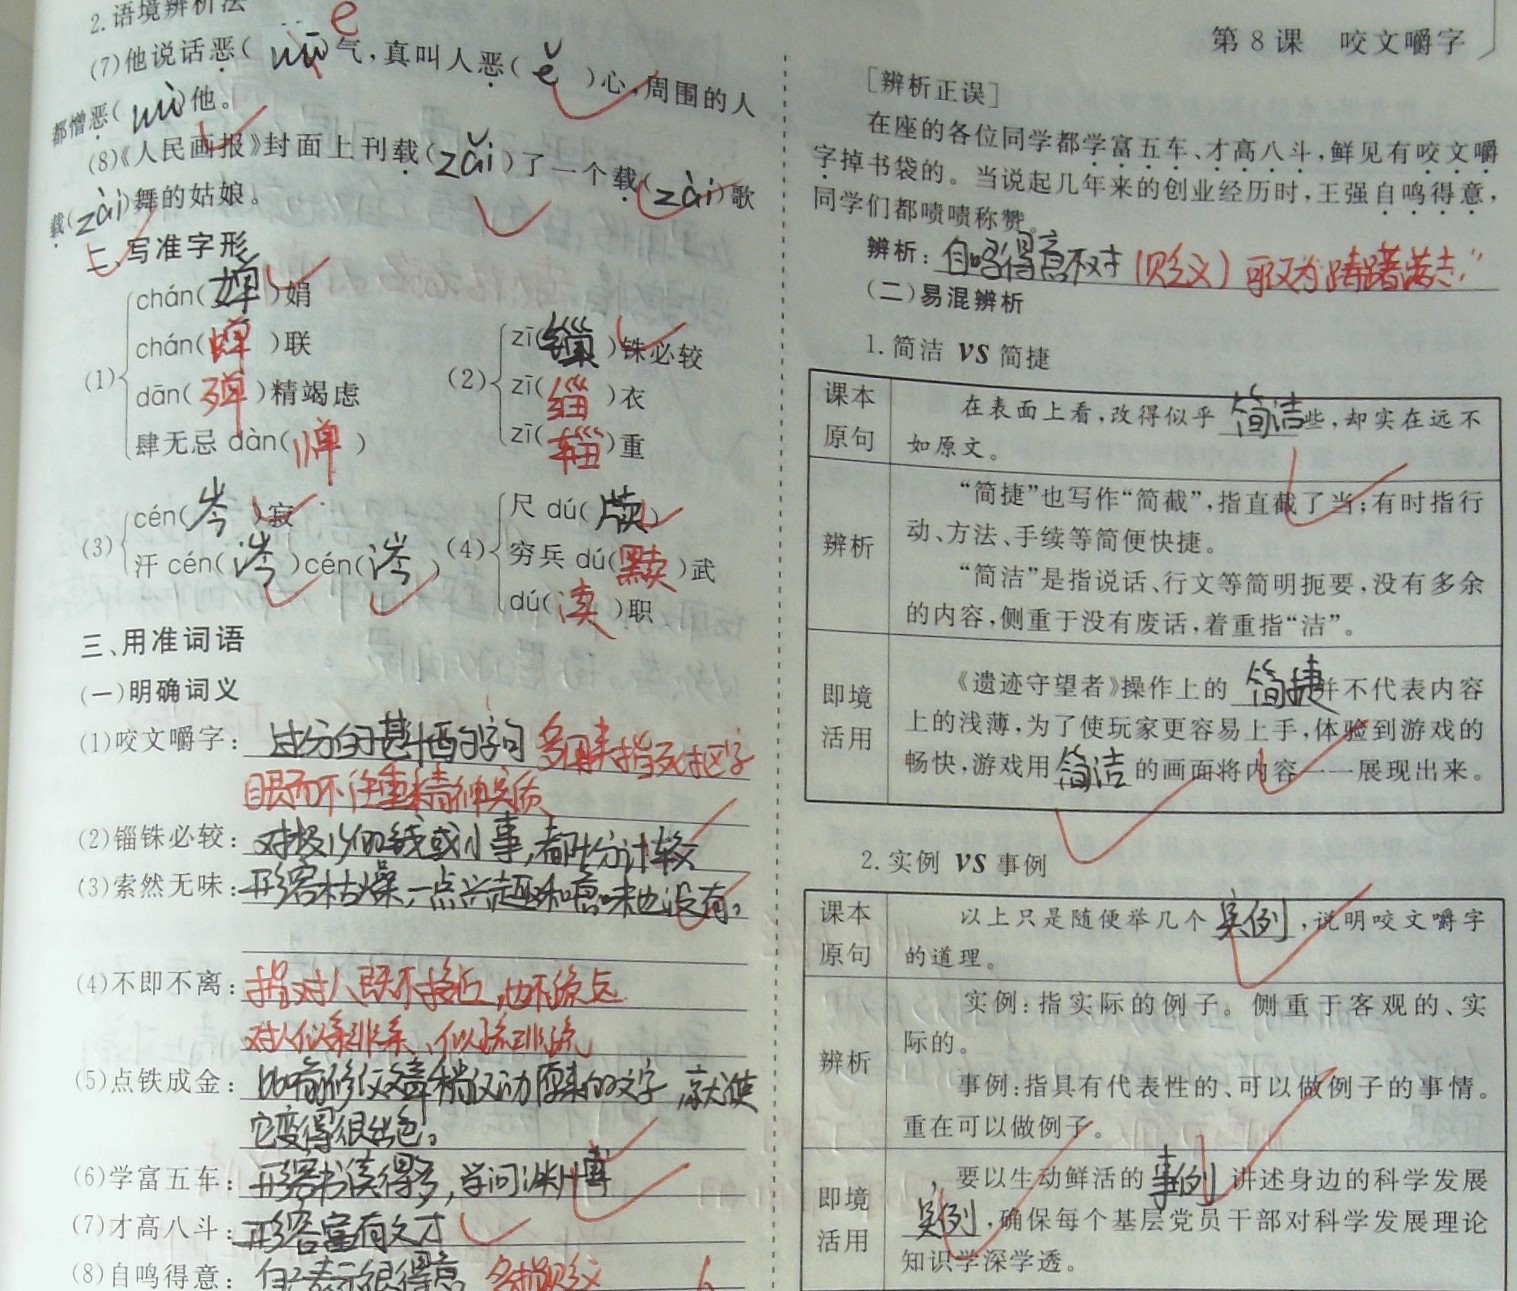 2.语境辨析法
(7)他说话恶( wù )气,真叫人恶( ě )心,周围的人
都憎恶( wù )他。
(8)《人民画报》封面上刊载( zǎi )了一个载( zài )歌
载( zài )舞的姑娘。
二、写准字形
(1)
chán( 婵 )娟
chán( 蝉 )联
dān( 殚 )精竭虑
肆无忌 dàn( 惮 )
(2)
zī( 锱 )铢必较
zī( 缁 )衣
zī( 辎 )重
(3)
cén( 岑 )寂
汗 cén( 涔 )cén( 涔 )
(4)
尺 dú( 牍 )
穷兵 dú( 黩 )武
dú( 渎 )职
三、用准词语
(一)明确词义
(1)咬文嚼字:过分的斟酌字句 多用来指死抠字
眼而不注重精神实质
(2)锱铢必较:对极少的钱或小事,都十分计较
(3)索然无味:形容枯燥,一点兴趣和意味也没有。
(4)不即不离:指对人既不接近,也不疏远
对人似亲非亲、似疏非疏
(5)点铁成金:比喻修仅文章稍仅动原来的文字,就使
它变得很出色。
(6)学富五车:形容书读得多,学问渊博
(7)才高八斗:形容富有文才
(8)自鸣得意:自己表示很得意 多指贬义
第8课 咬文嚼字
[辨析正误]
在座的各位同学都学富五车、才高八斗,鲜见有咬文嚼
字掉书袋的。当说起几年来的创业经历时,王强自鸣得意,
同学们都啧啧称赞。
辨析:自鸣得意不对(贬义)可改为“踌躇满志”
(二)易混辨析
1.简洁 VS 简捷
课本原句
在表面上看,改得似乎 简洁些,却实在远不
如原文。
辨析
“简捷”也写作“简截”,指直截了当;有时指行
动、方法、手续等简便快捷。
“简洁”是指说话、行文等简明扼要,没有多余
的内容,侧重于没有废话,着重指“洁”。
即境活用
《遗迹守望者》操作上的 简捷并不代表内容
上的浅薄,为了使玩家更容易上手,体验到游戏的
畅快,游戏用 简洁 的画面将内容一一展现出来。
2.实例 VS 事例
课本原句
以上只是随便举几个 实例,说明咬文嚼字
的道理。
辨析
实例:指实际的例子。侧重于客观的、实
际的。
事例:指具有代表性的、可以做例子的事情。
重在可以做例子。
即境活用
,要以生动鲜活的 事例 讲述身边的科学发展
实例,确保每个基层党员干部对科学发展理论
知识学深学透。